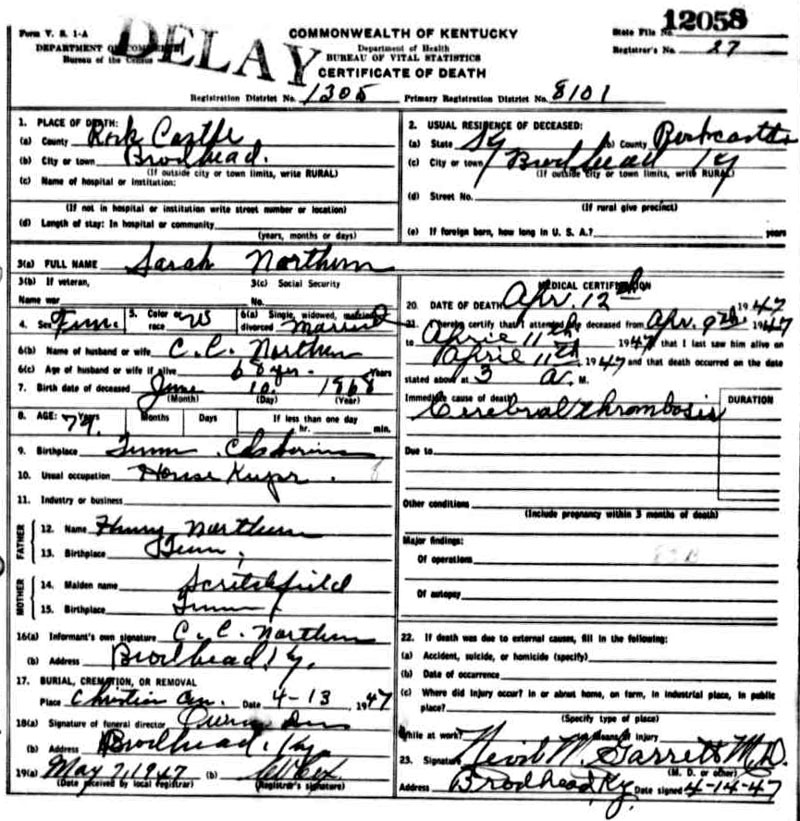 Form V. S. 1-A
DEPARTMENT OF COMMERCE
Bureau of the Census
DELAY
COMMONWEALTH OF KENTUCKY
Department of Health
BUREAU OF VITAL STATISTICS
CERTIFICATE OF DEATH
State File No. 12058
Registrar's No. 27
Registration District No. 1305 Primary Registration District No. 8101
1. PLACE OF DEATH:
(a) County Rock Castle
(b) City or town Brodhead.
(If outside city or town limits, write RURAL)
(c) Name of hospital or institution:
(If not in hospital or institution write street number or location)
(d) Length of stay: In hospital or community
(years, months or days)
2. USUAL RESIDENCE OF DECEASED:
(a) State Ky (b) County Rockcastle
(c) City or town Brodhead Ky
(If outside city or town limits, write RURAL)
(d) Street No.
(If rural give precinct)
(e) If foreign born, how long in U. S. A.? years
3(a) FULL NAME Sarah Northern
3(b) If veteran, 3(c) Social Security
Name war No.
4. Sex Fem. 5. Color or race W 6(a) Single, widowed, married, divorced Married
6(b) Name of husband or wife C. C. Northern
6(c) Age of husband or wife if alive 68 yr. Years
7. Birth date of deceased June 10 1868
(Month) (Day) (Year)
8. AGE: Years 79 Months Days If less than one day
hr. min.
9. Birthplace Tenn
10. Usual occupation House Keeper
11. Industry or business
FATHER
12. Name Henry Northern
13. Birthplace Tenn,
MOTHER
14. Maiden name Scritchfield
15. Birthplace Tenn
16(a) Informant's own signature C. C. Northern
(b) Address Brodhead, Ky.
17. BURIAL, CREMATION, OR REMOVAL
Place Christian Cem. Date 4-13 1947
18(a) Signature of funeral director
(b) Address Brodhead. Ky
19(a) May 7, 1947 (b)
(Date received by local registrar) (Registrar's signature)
MEDICAL CERTIFICATION
20. DATE OF DEATH Apr. 12th 1947
21. I hereby certify that I attended the deceased from Apr. 9th 1947
to April 11th 1947 that I last saw him alive on
April 11th, 1947 and that death occurred on the date
stated above at 3 A. M.
Immediate cause of death DURATION
Cerebral thrombosis
Due to
Other conditions
(Include pregnancy within 3 months of death)
Major findings:
Of operations
Of autopsy
22. If death was due to external causes, fill in the following:
(a) Accident, suicide, or homicide (specify)
(b) Date of occurrence
(c) Where did injury occur? In or about home, on farm, in industrial place, in public
place?
(Specify type of place)
While at work? (e) Means of injury
23. Signature Nevil N. Garrett M.D.
(M. D. or other)
Address Brodhead, Ky. Date signed 4-14-47